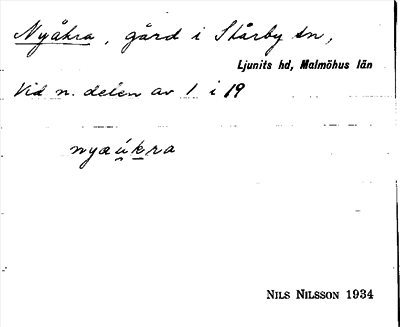 Nyåkra, gård i Skårby sn,
Ljunits hd, Malmöhus län
Vid n. delen av 1 i 19
nyaúkra
NILS NILSSON 1934